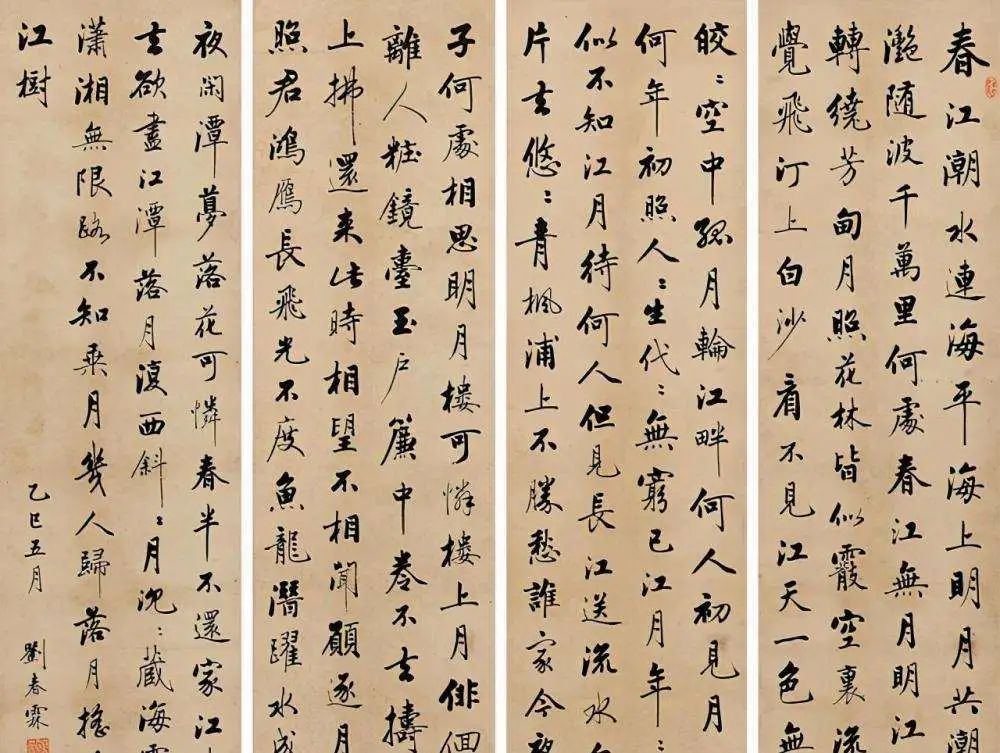 春江潮水連海平海上明月共潮
灔随波千萬里何處春江無月明江
轉繞芳甸月照花林皆似霰空裏流
覺飛汀上白沙看不見江天一色無
皎〻空中孤月輪江畔何人初見月
何年初照人〻生代〻無窮已江月年〻
似不知江月待何人但見長江送流水
片去悠〻青楓浦上不勝愁誰家今
子何處相思明月樓可憐樓上月俳佪
離人粧鏡臺玉戶簾中卷不去擣
上拂還来此時相望不相聞願逐月
照君鴻鴈長飛光不度魚龍潛躍水成
夜閑潭夢落花可憐春半不還家江
去欲盡江潭落月復西斜〻月沈〻蔵海
瀟湘無限路不知乘月幾人歸落月搖
江樹
乙巳五月
劉春霖